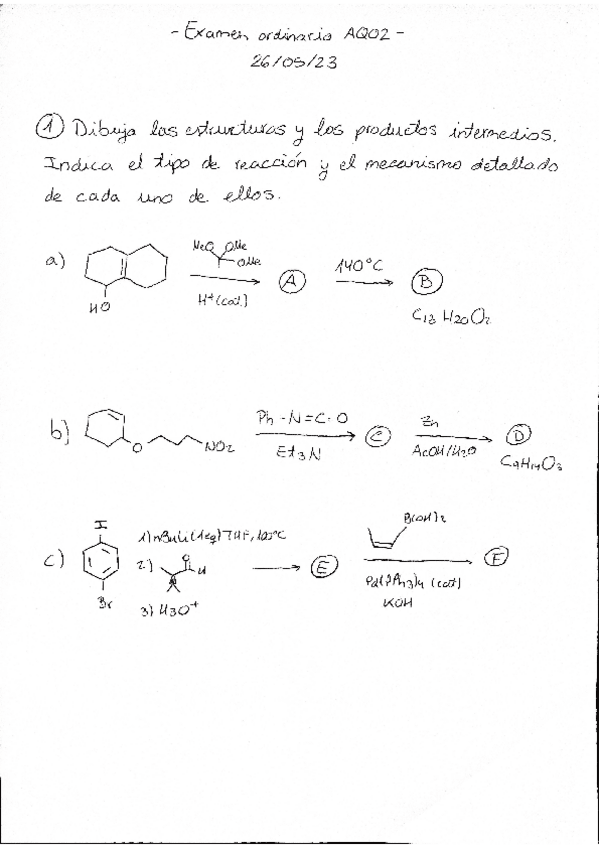 - Examen ordinario AQO2 -
26/05/23
① Dibuja las estructuras y los productos intermedios.
Indica el tipo de reacción y el mecanismo detallado
de cada uno de ellos.
a)
HO
MeO OMe
OMe
H+ (cat.)
A
140°C
B
C13 H20 O2
b)
O
NO2
Ph - N = C - O
Et3N
C
Zn
AcOH/H2O
D
C9H14O3
c)
I
Br
1) nBuLi (1eq) THF,
2)
O
H
3) H3O+
E
B(OH)2
Pd(PPh3)4 (cat)
KOH
F